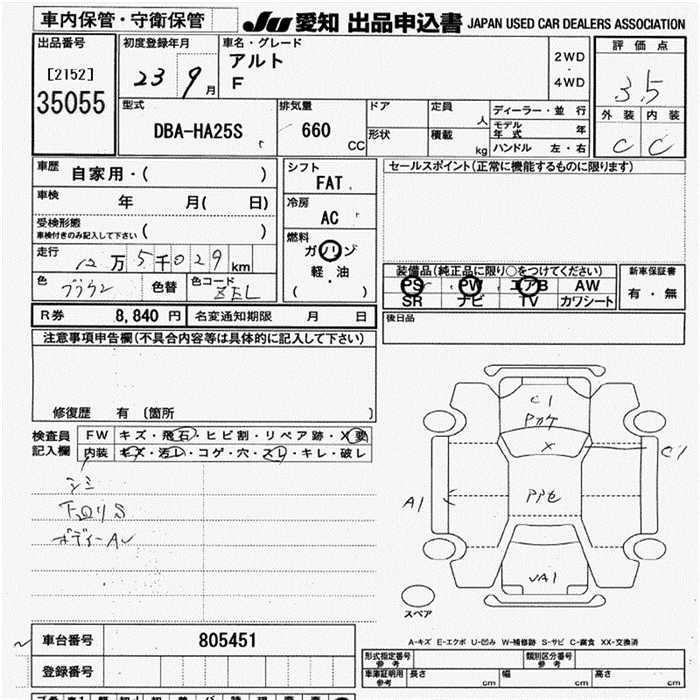 車内保管・守衛保管
JU 愛知 出品申込書 JAPAN USED CAR DEALERS ASSOCIATION
出品番号
[2152]
35055
初度登録年月
23 9月
車名・グレード
アルト
F
2WD
・
4WD
評価点
3.5
外装 内装
C C
型式
DBA-HA25S
排気量
660 CC
ドア
形状
定員 人
積載 kg
ディーラー・並行
モデル年式 年
ハンドル 左・右
車歴 自家用・( )
車検 年 月( 日)
受検形態
車検付きのみ記入して下さい ( )
走行 12万5千029km
色 ブラウン 色替 色コード ZEL
シフト
FAT
冷房
AC
燃料
ガソリン
軽・油
( )
セールスポイント(正常に機能するものに限ります)
装備品(純正品に限り○をつけてください)
PS PW エアB AW
SR ナビ TV カワシート
新車保証書
有・無
R券 8,840 円 名変通知期限 月 日
後日品
注意事項申告欄(不具合内容等は具体的に記入して下さい)
修復歴 有 〔箇所 〕
検査員
記入欄
FW キズ・飛石・ヒビ割・リペア跡・X要
内装 キズ・汚レ・コゲ・穴・スレ・キレ・破レ
シミ
下回りS
ボディーAU
C1
X
C1
A1
スペア
A-キズ E-エクボ U-凹み W-補修跡 S-サビ C-腐食 XX-交換済
車台番号 805451
登録番号
形式指定番号
参考
類別区分番号
参考
車庫証明用
参考
長さ cm
幅 cm
高さ cm